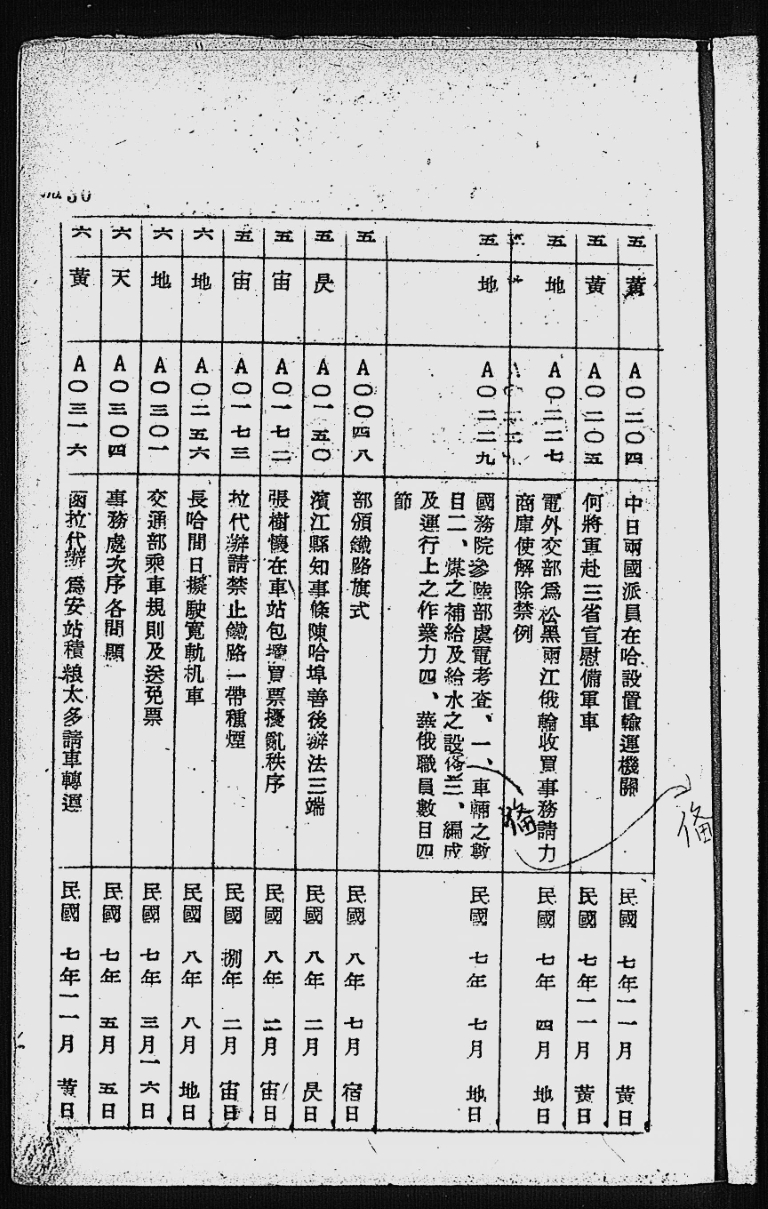 30
五 黃 A〇二〇四 中日兩國派員在哈設置輸運機關 民國 七年一一月 黃日
五 黃 A〇二〇五 何將軍赴三省宣慰備軍車 民國 七年一一月 黃日
五 地 A〇二二七 電外交部爲松黑兩江俄輪收買事務請力
商庫使解除禁例 民國 七年 四月 地日
五 地 A〇二二九 國務院參陸部虞電考査、一、車輛之數
目二、煤之補給及給水之設俻三、編成
及運行上之作業力四、華俄職員數目四
節 民國 七年 七月 地日
俻
俻
五 A〇〇四八 部頒鐵路旗式 民國 八年 七月 宿日
五 昃 A〇一五〇 濱江縣知事條陳哈埠善後辦法三端 民國 八年 二月 昃日
五 宙 A〇一七二 張樹懷在車站包攬買票擾亂秩序 民國 八年 二月 宙日
五 宙 A〇一七三 拉代辦請禁止鐵路一帶種煙 民國 捌年 二月 宙日
六 地 A〇二五六 長哈間日擬駛寬軌机車 民國 八年 八月 地日
六 地 A〇三〇一 交通部乘車規則及送免票 民國 七年 三月一六日
六 天 A〇三〇四 事務處次序各問題 民國 七年 五月 五日
六 黃 A〇三一六 函拉代辦爲安站積粮太多請車轉運 民國 七年一一月 黃日